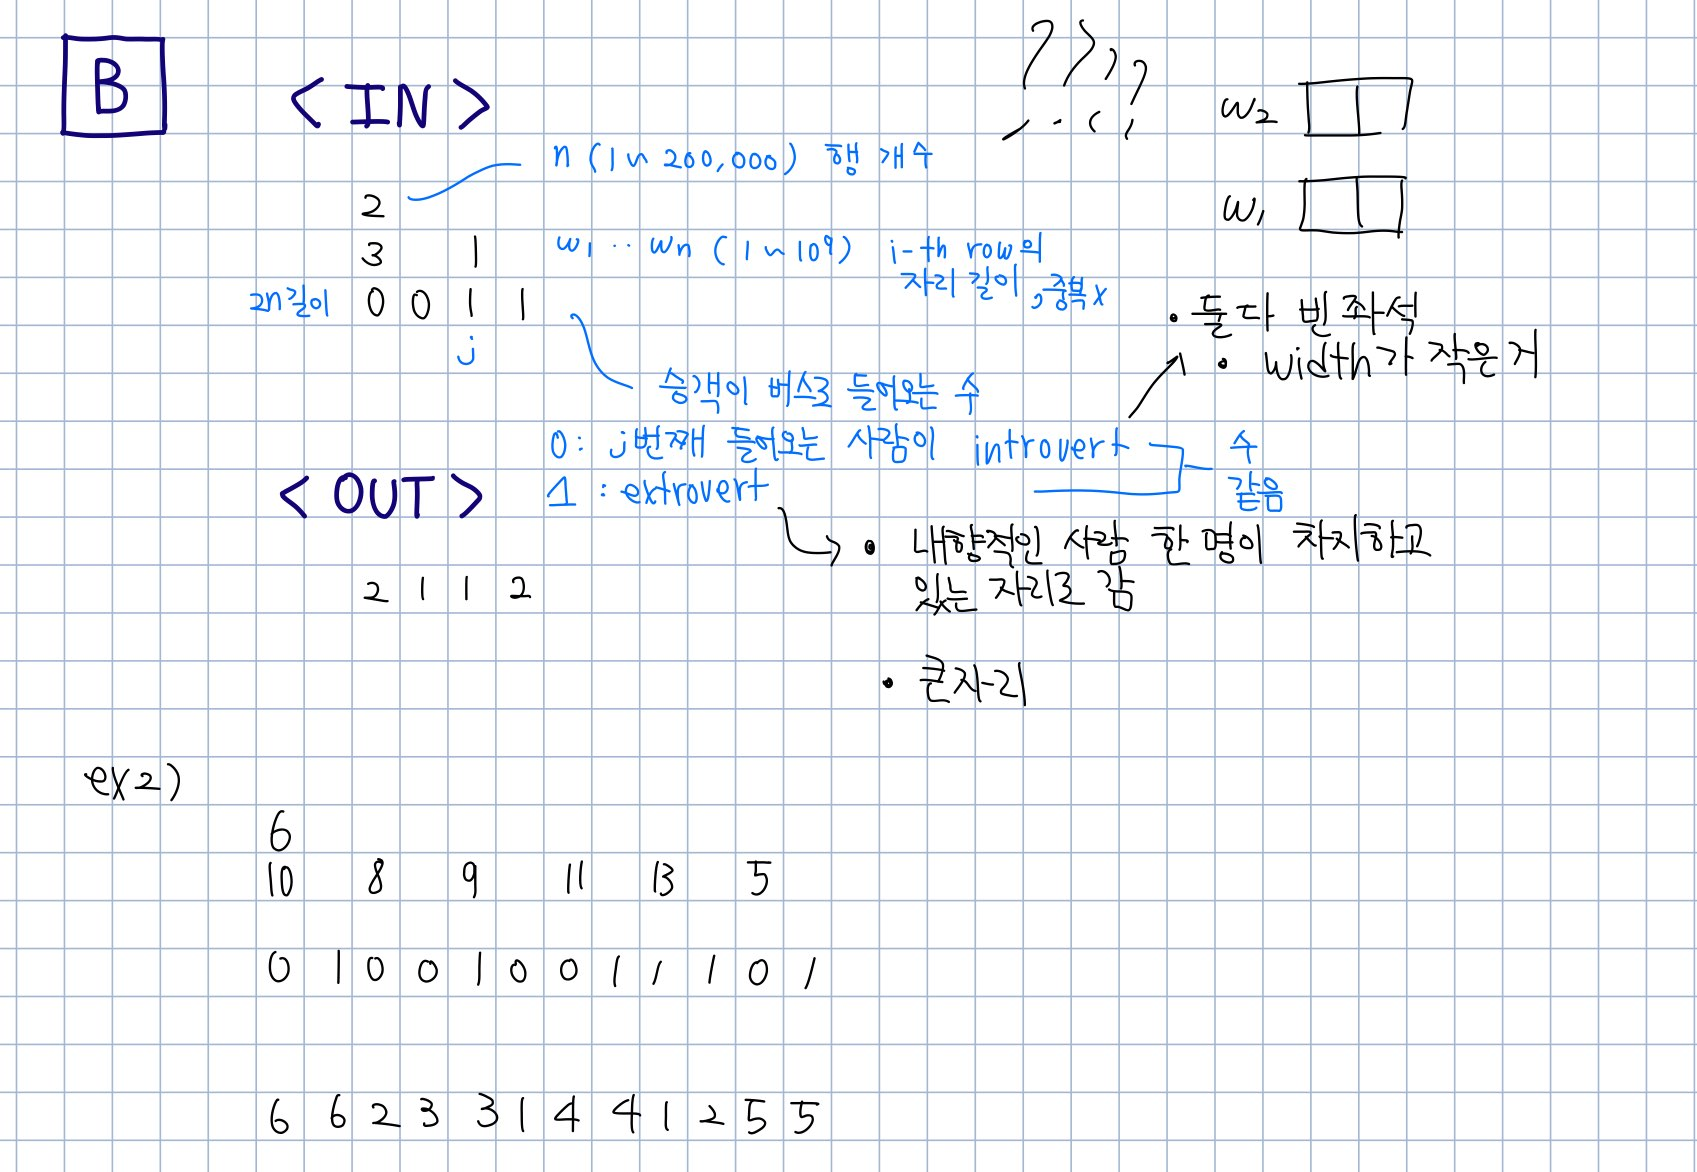 B
< IN >
n (1 ~ 200,000) 행 개수
2
3 1
w1 ·· wn (1 ~ 10⁹) i-th row의
자리 길이, 중복x
2n길이 0 0 1 1
j
승객이 버스로 들어오는 수
0 : j번째 들어오는 사람이 introvert
1 : extrovert
수
같음
w2
w1
• 둘다 빈 좌석
• width가 작은거
< OUT >
2 1 1 2
• 내향적인 사람 한 명이 차지하고
있는 자리로 감
• 큰자리
ex2)
6
10 8 9 11 13 5
0 1 0 0 1 0 0 1 1 1 0 1
6 6 2 3 3 1 4 4 1 2 5 5